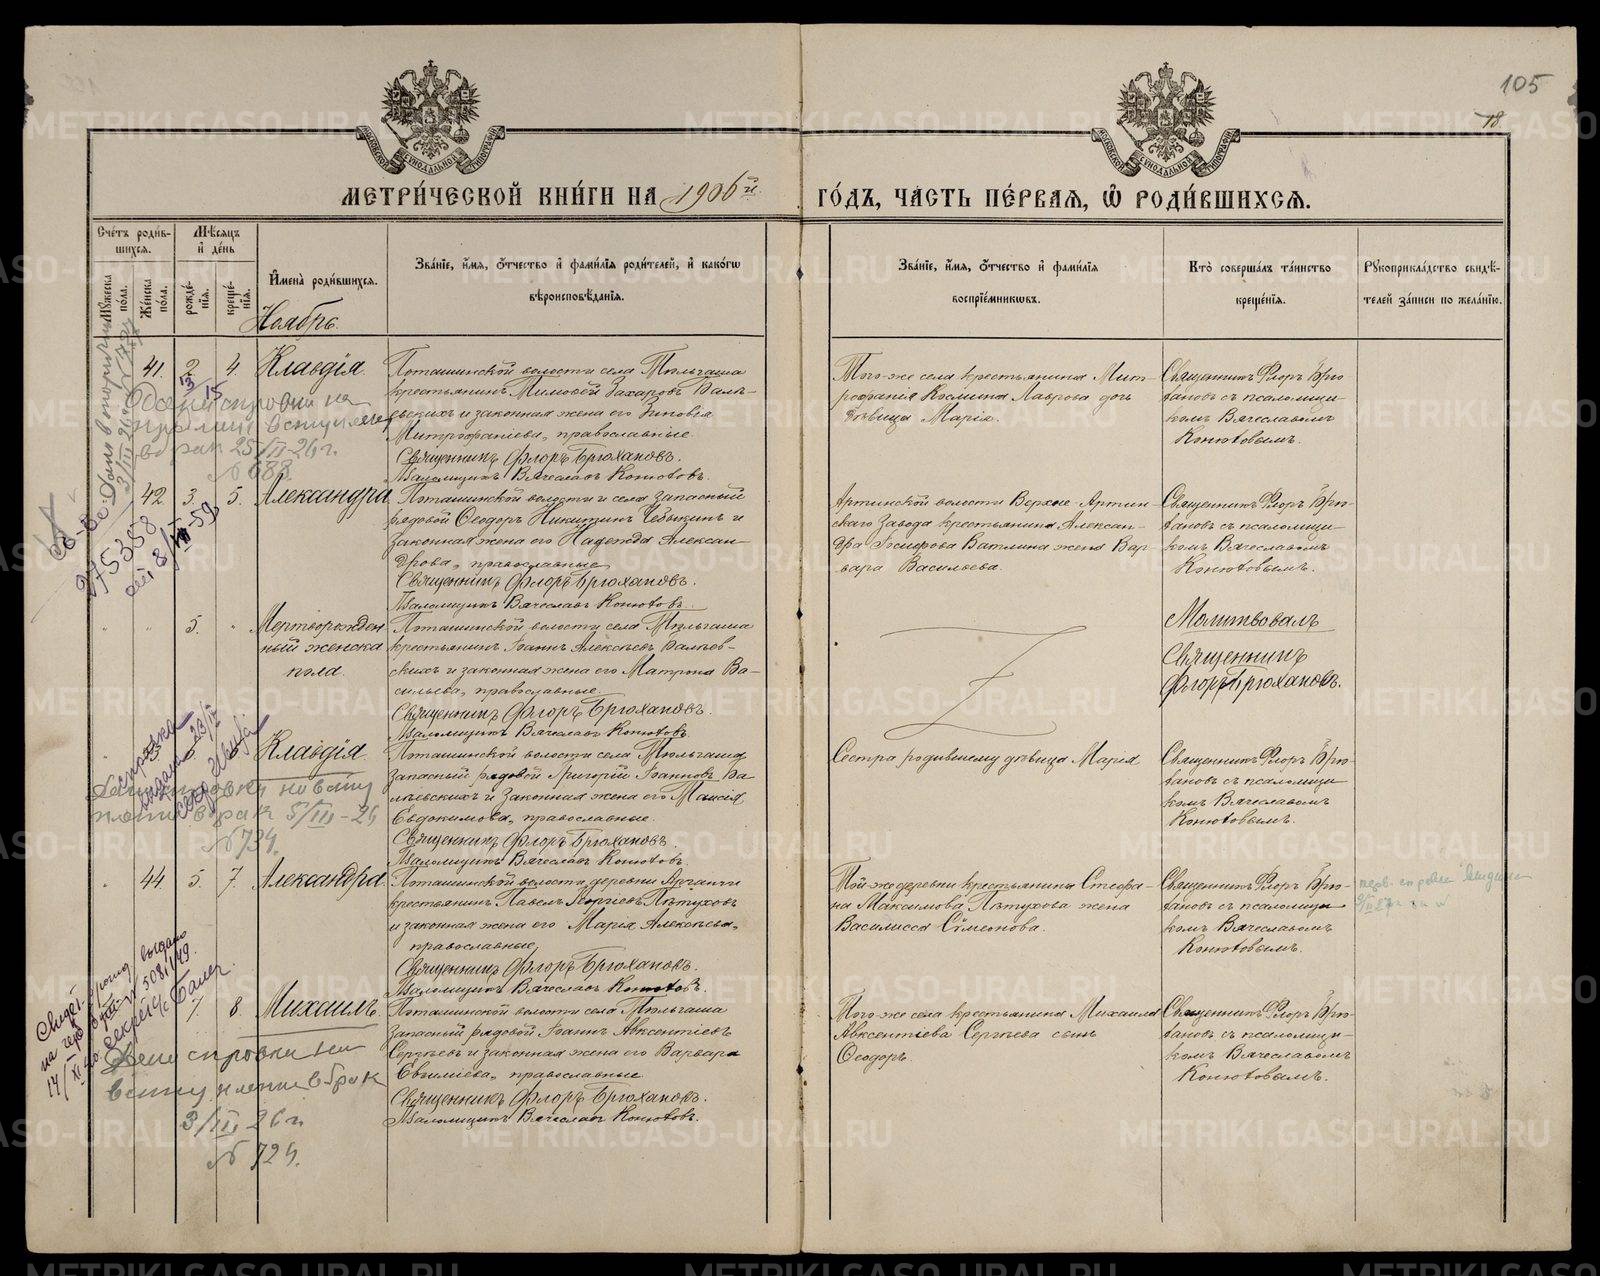 105
18
МЕТРИ́ЧЕСКОЙ КНИ́ГИ НА 1906й.
ГО́ДЪ, ЧА́СТЬ ПЕ́РВАЯ, Ѡ РОДИ́ВШИХСЯ.
Сче́тъ роди́в-
шихся.
Мѣ́сяцъ
и де́нь
Мꙋ́жеска пола.
Же́нска пола.
рожде́-
нїя.
креще́-
нїя.
И҆мена̀ роди́вшихся.
Зва́нїе, и҆́мя, ѻ҆́тчество и҆ фами́лїя роди́телей, и҆ како́гѡ
вѣроисповѣ́данїя.
Зва́нїе, и҆́мя, ѻ҆́тчество и҆ фами́лїя
воспрїе́мниковъ.
Кто̀ соверша́лъ та́инство
креще́нїя.
Рꙋкоприкла́дство свидѣ́-
телей за́писи по жела́нїю.
Ноябрь.
41. 2 4. Клавдія.
13 15
Поташинской волости села Тюльгаша
крестьянинъ Захаровъ
и законная жена его Зиновія
Митрофаніева, православные.
Священникъ Флоръ Брюхановъ.
Псаломщикъ Вячеславъ Конютовъ.
Того-же села крестьянина Мит-
рофанія Космина Лаврова дочь
дѣвица Марія.
Священникъ Флоръ Брю-
хановъ съ псаломщи-
комъ Вячеславомъ
Конютовымъ.
справки на
в брак 25/II-26 г.
№ 688
42 3. 5. Александра
Поташинской волости и села запасный
рядовой Ѳеодоръ Никитинъ Чебыкинъ и
законная жена его Надежда Алексан-
дрова, православные
Священникъ Флоръ Брюхановъ.
Псаломщикъ Вячеславъ Конютовъ.
Артинской волости Верхне-Артин-
скаго Завода крестьянина Алексан-
дра Іосифова Ватлина жена Вар-
вара Васильева.
Священникъ Флоръ Брю-
хановъ съ псаломщи-
комъ Вячеславомъ
Конютовымъ.
5. Мертворожден
ный женска
пола.
Поташинской волости села Тюльгаша
крестьянинъ Іоаннъ Алексѣевъ Валѣев-
скихъ и законная жена его Матрона Ва-
сильева, православные.
Священникъ Флоръ Брюхановъ.
Псаломщикъ Вячеславъ Конютовъ.
Молитвовалъ
Священникъ
Флоръ Брюхановъ.
Клавдія
Поташинской волости села Тюльгаша
запасный рядовой Григорій Іоанновъ Ва-
лѣевскихъ и законная жена его Таисія
Евдокимова, православные.
Священникъ Флоръ Брюхановъ.
Псаломщикъ Вячеславъ Конютовъ.
Сестра родившему дѣвица Марія
Священникъ Флоръ Брю-
хановъ съ псаломщи-
комъ Вячеславомъ
Конютовымъ.
в брак 5/III-26
№ 734.
44 5. 7. Александра
Поташинской волости деревни
крестьянинъ Павелъ Георгіевъ Пѣтуховъ
и законная жена его Марія Алексѣева,
православные,
Священникъ Флоръ Брюхановъ.
Псаломщикъ Вячеславъ Конютовъ.
Той-же деревни крестьянина Стефа-
на Максимова Пѣтухова жена
Василисса Сѵмеонова.
Священникъ Флоръ Брю-
хановъ съ псаломщи-
комъ Вячеславомъ
Конютовымъ.
7. 8. Михаилъ.
Поташинской волости села Тюльгаша
запасный рядовой Іоаннъ Авксентіевъ
Сергѣевъ и законная жена его Варвара
Евѳиміева, православные
Священникъ Флоръ Брюхановъ.
Псаломщикъ Вячеславъ Конютовъ.
Того же села крестьянина Михаила
Авксентіева Сергѣева сынъ
Ѳеодоръ.
Священникъ Флоръ Брю-
хановъ съ псаломщи-
комъ Вячеславомъ
Конютовымъ.
справка на
вступление в брак
3/III 26 г.
№ 724.